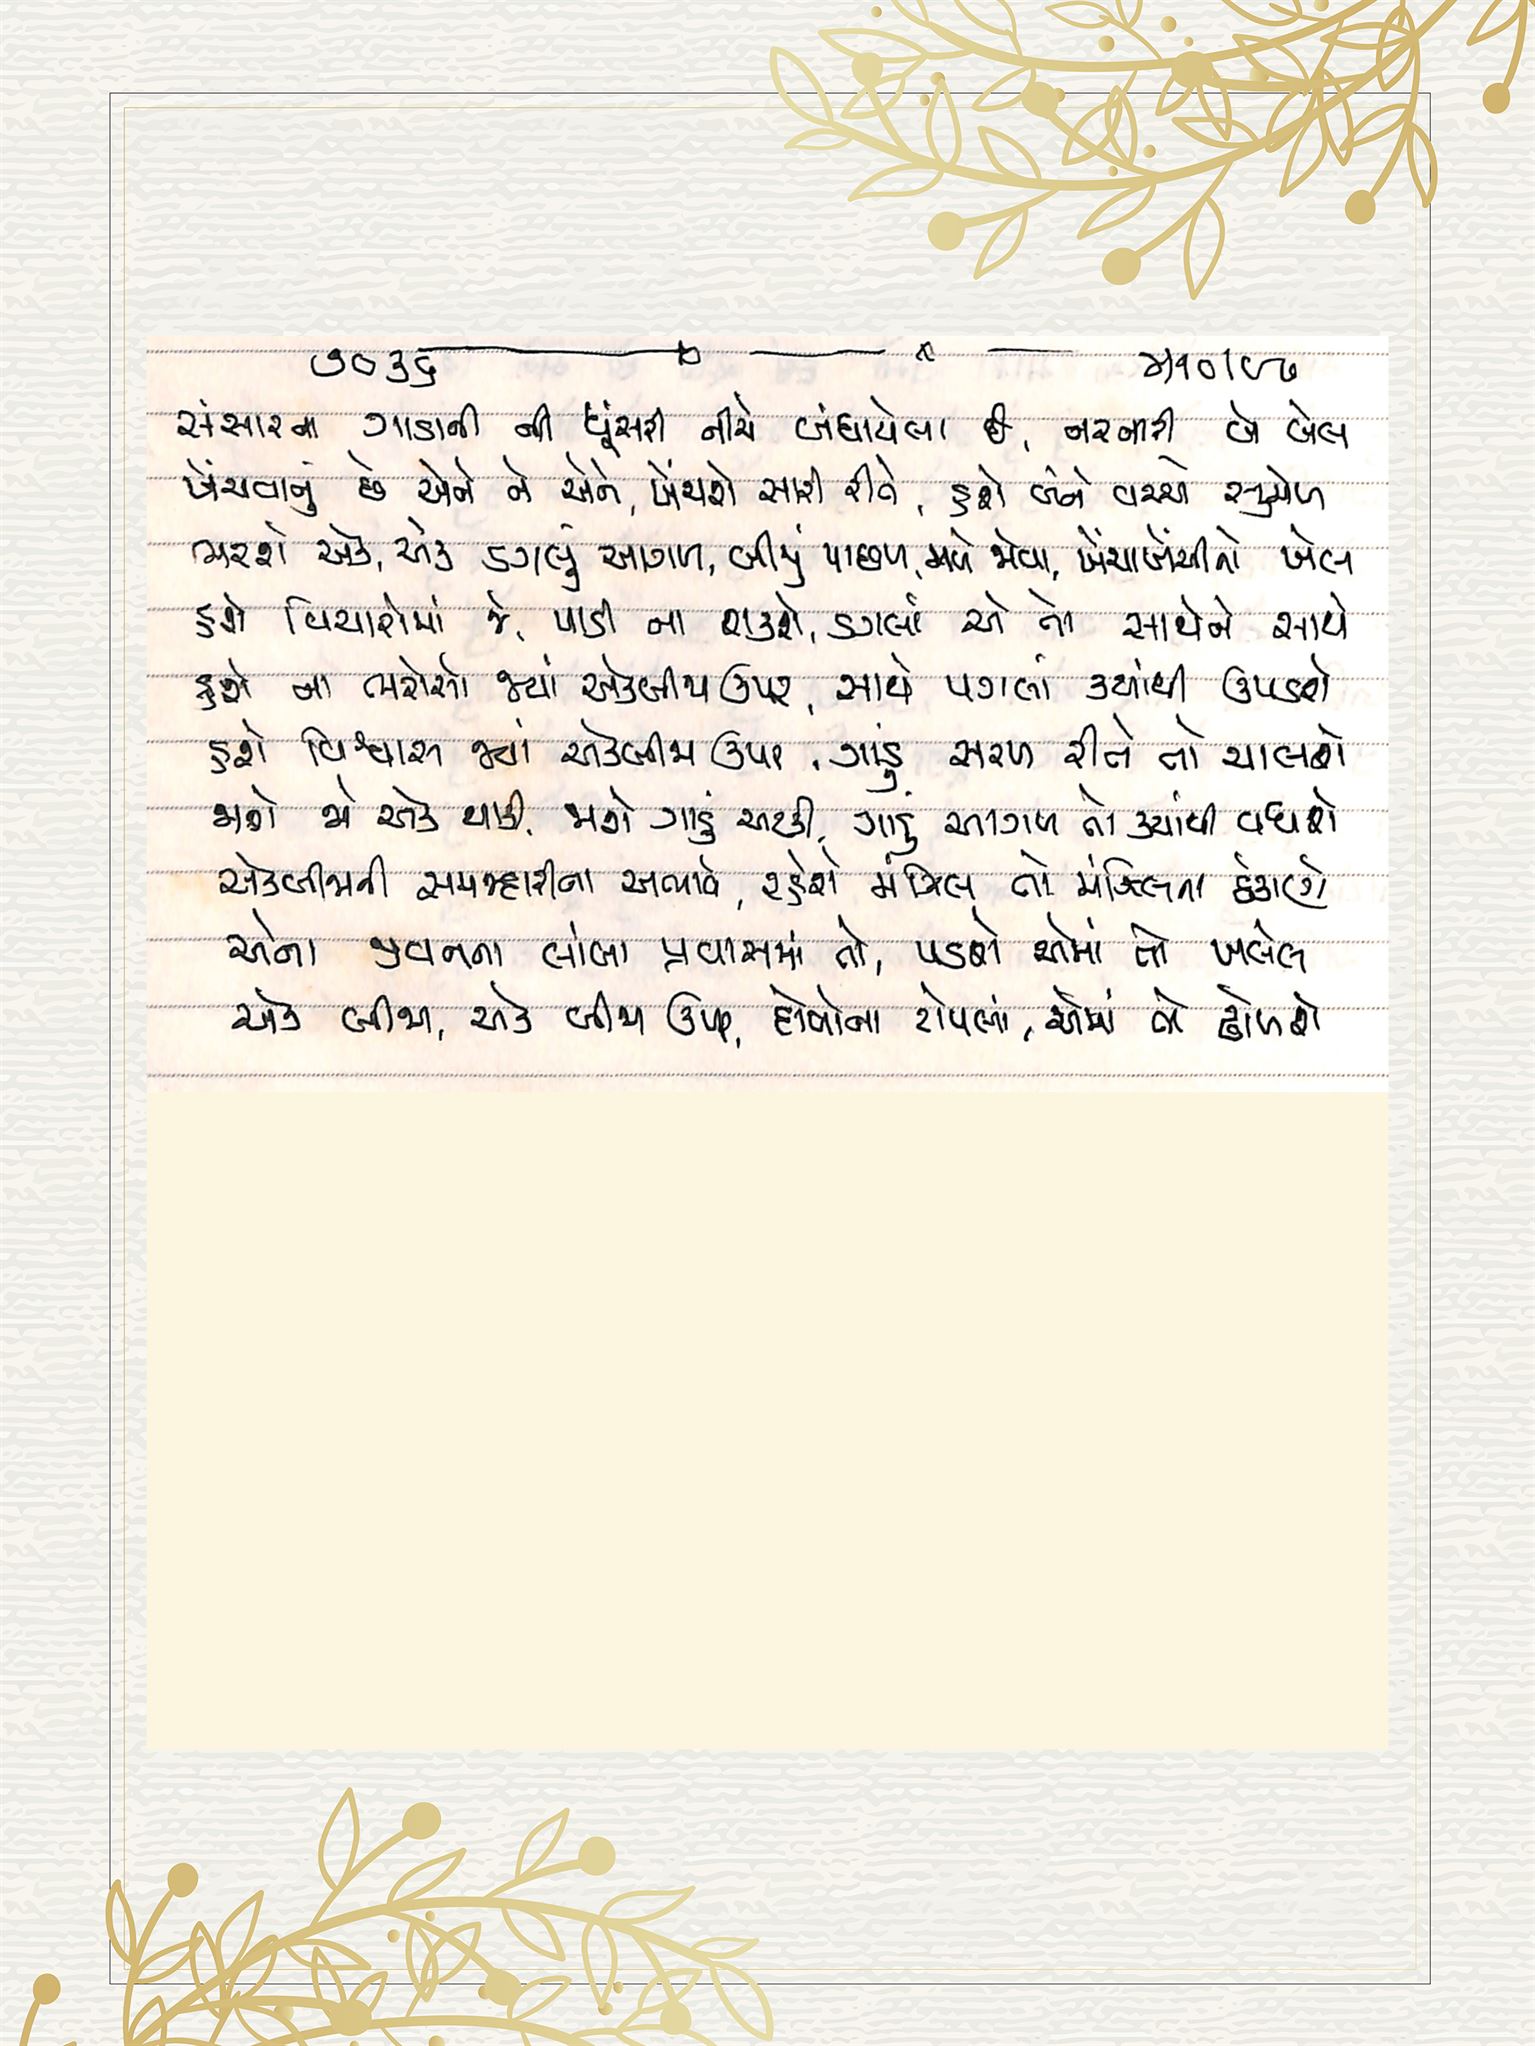 ૭૦૩૬
સંસારના ગાડાની ની ધૂંસરી નીચે બંધાયેલા છે, નરનારી બે બેલ
ખેંચવાનું છે એને ને એને, ખેંચશે સારી રીતે, હશે બંને વચ્ચે સુમેળ
ભરશે એક, એક ડગલું આગળ, બીજું પાછળ, મળે જોવા, ખેંચાખેંચીનો ખેલ
હશે વિચારોમાં જે, પાડી ના શકશે, ડગલાં એ તો સાથેને સાથે
હશે ના ભરોસો જ્યાં એકબીજા ઉપર, સાથે પગલાં ક્યાંથી ઉપડશે
હશે વિશ્વાસ જ્યાં એકબીજા ઉપર, ગાડું સરળ રીતે તો ચાલશે
જાશે જો એક થાકી, જાશે ગાડું અટકી, ગાડું આગળ તો ક્યાંથી વધશે
એકબીજાની સમજદારીના અભાવે, રહેશે મંઝિલ તો મંઝિલના ઠેકાણે
એના જીવનના લાંબા પ્રવાસમાં તો, પડશે એમાં તો ખલેલ
એક બીજા, એક બીજા ઉપર, દોષોના ટોપલા, એમાં જો ઢોળશે